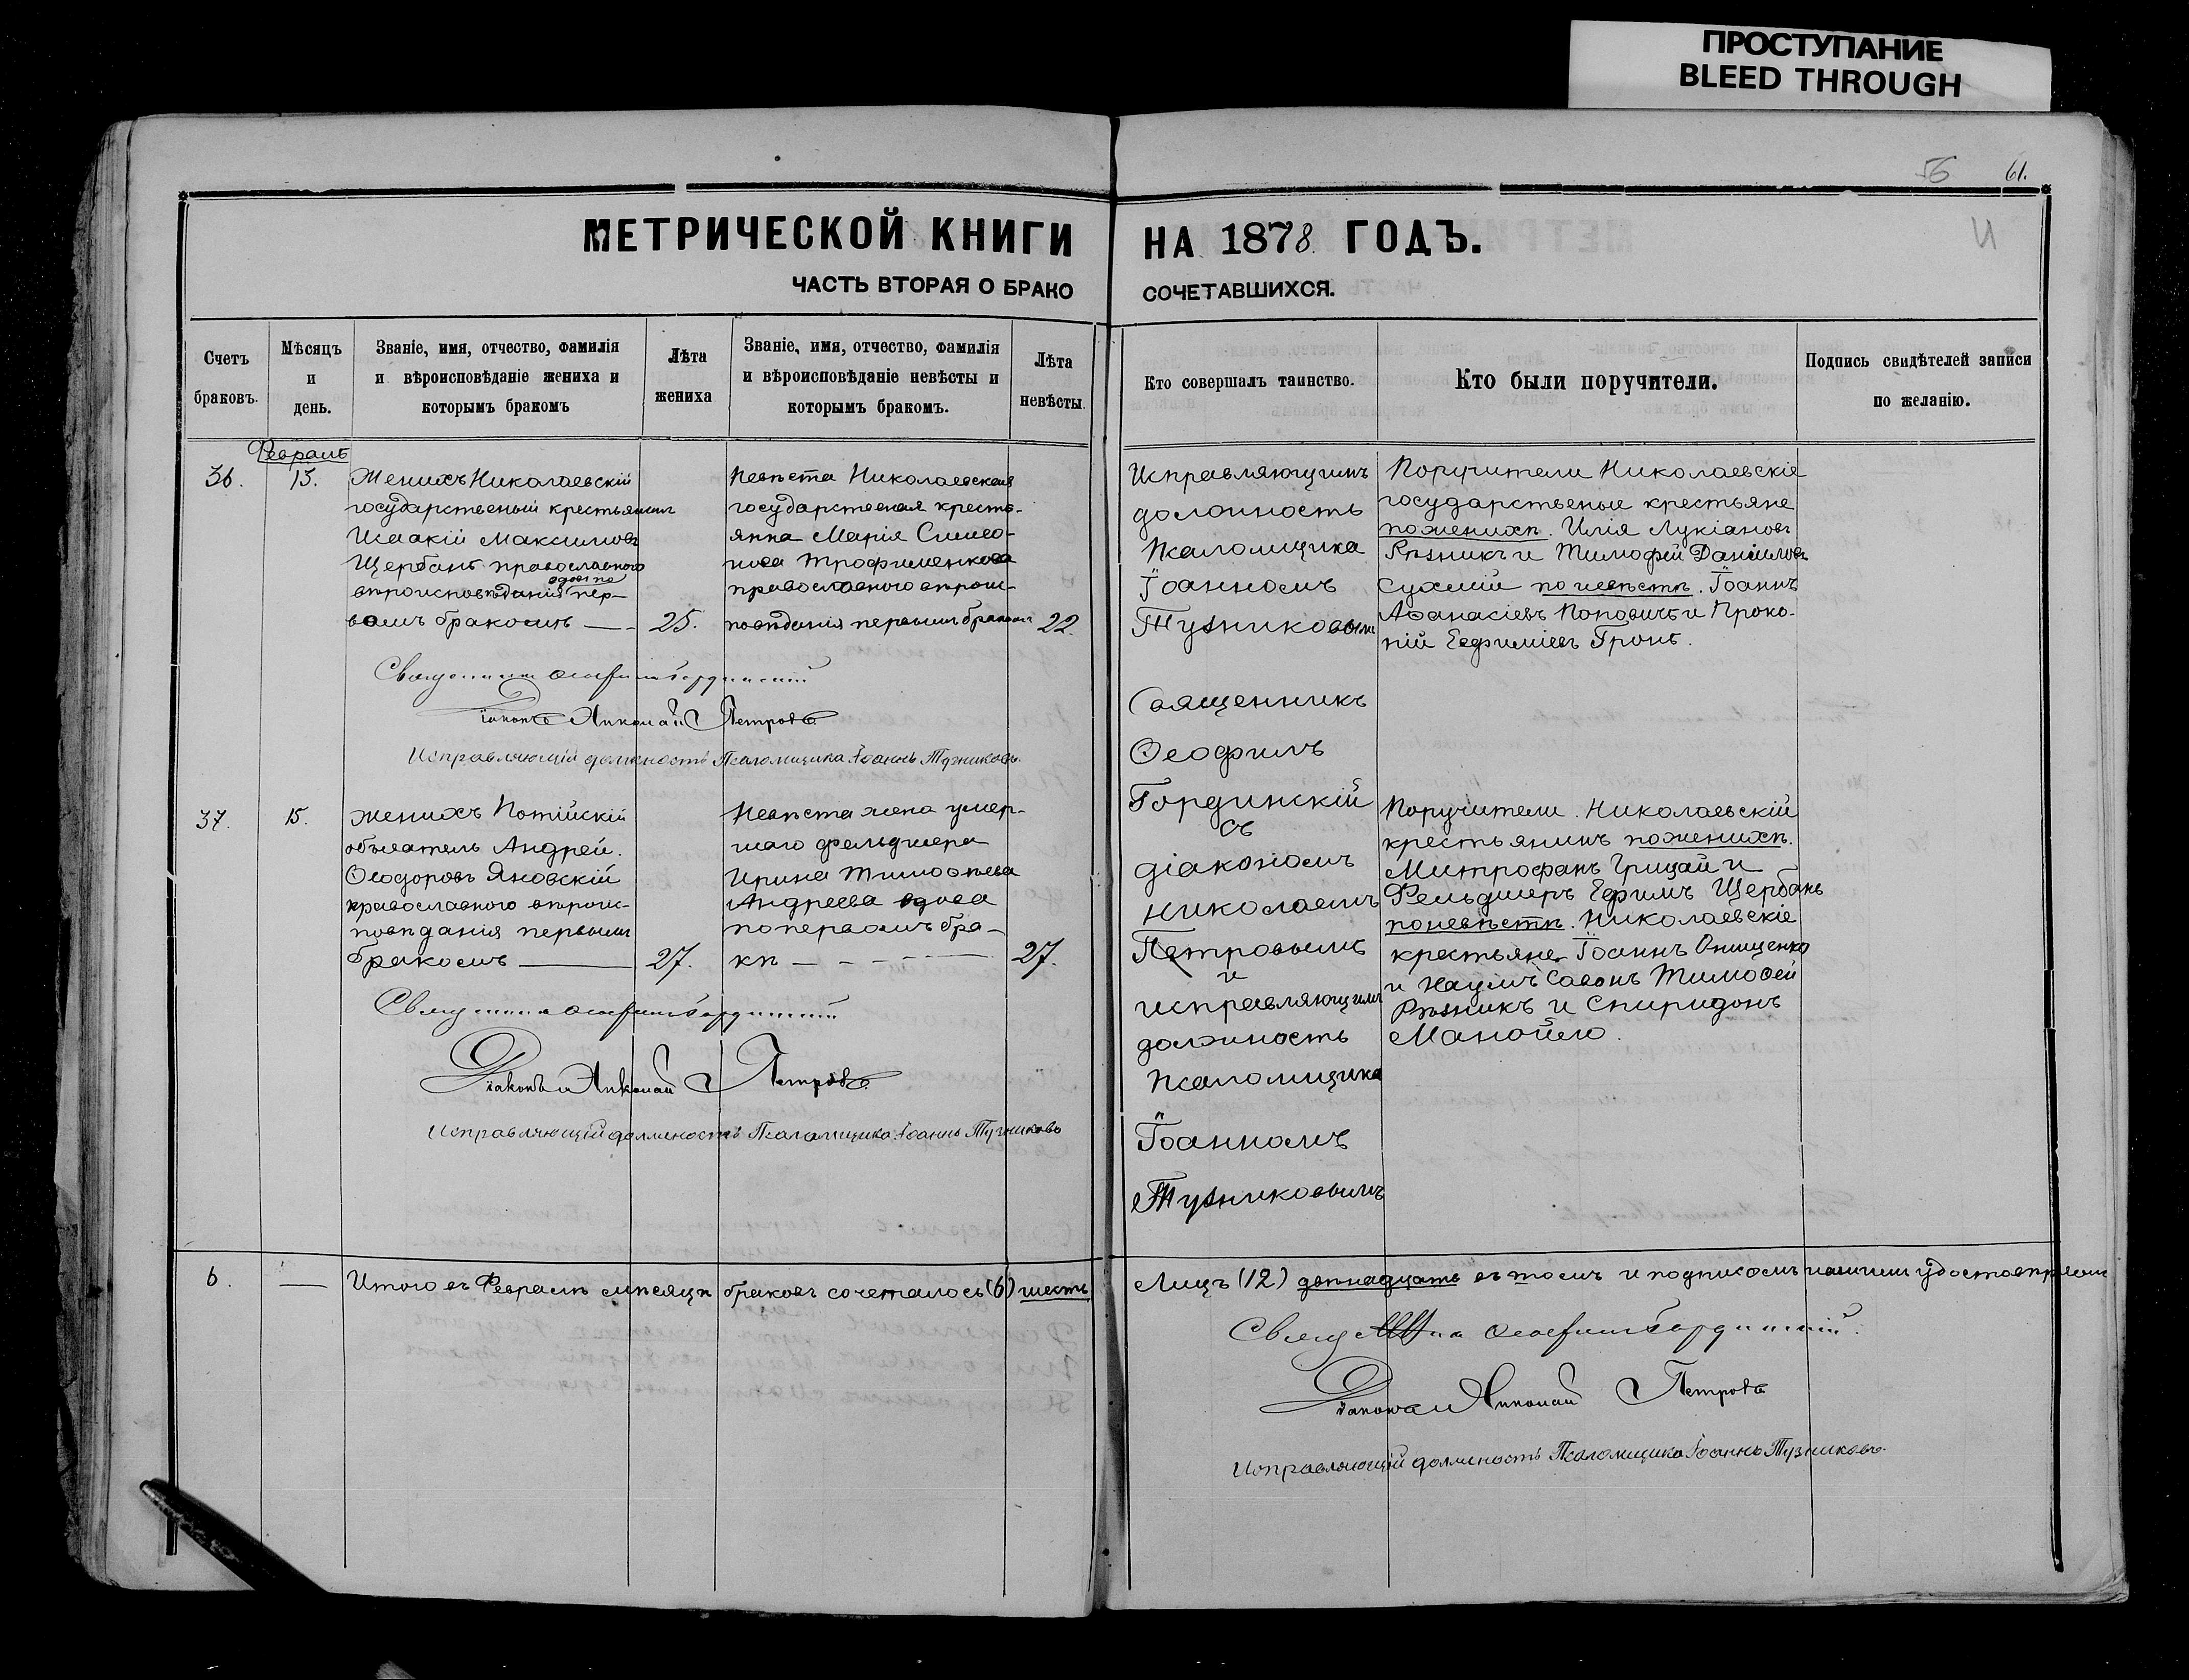 ПРОСТУПАНИЕ
BLEED THROUGH
56 61.
МЕТРИЧЕСКОЙ КНИГИ НА 1878 ГОДЪ.
И
ЧАСТЬ ВТОРАЯ О БРАКО СОЧЕТАВШИХСЯ.
Счетъ
браковъ.
Мѣсяцъ
и
день.
Званіе, имя, отчество, фамилія
и вѣроисповѣданіе жениха и
которымъ бракомъ
Лѣта
жениха
Званіе, имя, отчество, фамилія
и вѣроисповѣданіе невѣсты и
которымъ бракомъ.
Лѣта
невѣсты.
Кто совершалъ таинство.
Кто были поручители.
Подпись свидѣтелей записи
по желанію.
Февраль
36.
13.
Женихъ Николаевскій
государственый крестьянинъ
Исаакій Максимовъ
Щербань православнаго
вѣроисповѣданія пер-
вымъ бракомъ —
25.
Невѣста Николаевская
государственая кресть-
янка Марія Симео-
нова Трофименкова
православного вѣрои-
повѣданія первымъ бракомъ
22.
Священникъ Ѳеофилъ Гординскій
Діаконъ Николай Петровъ
Исправляющій должность Псаломщика Іоаннъ Тузниковъ.
37.
15.
Женихъ Потійскій
обыватель Андрей.
Ѳеодоровъ Яновскій
православного вѣрои-
повѣданія первымъ
бракомъ —
27.
Невѣста жена умер-
шаго фельдшера
Ирина Тимоѳѣева
Андреева вдова
по первомъ бра-
кѣ — — — —
27.
Священникъ Ѳеофилъ Гординскій
Діаконъ Николай Петровъ
Исправляющій должность Псаломщика Іоаннъ Тузниковъ
6.
—
Итого въ Февралѣ мѣсяцѣ браковъ сочеталось (6) шесть
Исправляющимъ
должность
Псаломщика
Іоанномъ
Тузниковымъ
Священникъ
Ѳеофилъ
Гординскій
съ
діакономъ
Николаемъ
Петровымъ
и
исправляющимъ
должность
Псаломщика
Іоанномъ
Тузниковымъ
Поручители Николаевскіе
государственые крестьяне
по женихѣ. Илія Лукіановъ
Рѣзникъ и Тимофей Даниловъ
Сухлій по невѣстѣ. Іоаннъ
Аѳанасіевъ Поповичъ и Проко-
пій Евфиміевъ Гронь.
Поручители. Николаевскій
крестьянинъ по женихѣ.
Митрофанъ Грицай и
Фельдшеръ Ефимъ Щербань
по невѣстѣ. Николаевскіе
крестьяне Іоаннъ Онищенко
и Наумъ Савонъ Тимоѳей
Рѣзникъ и Спиридонъ
Манойло.
Лицъ (12) двѣнадцать въ томъ и подписомъ нашимъ удостовѣряемъ
Священникъ Ѳеофилъ Гординскій.
Діаконъ Николай Петровъ
Исправляющій должность Псаломщика Іоаннъ Тузниковъ.